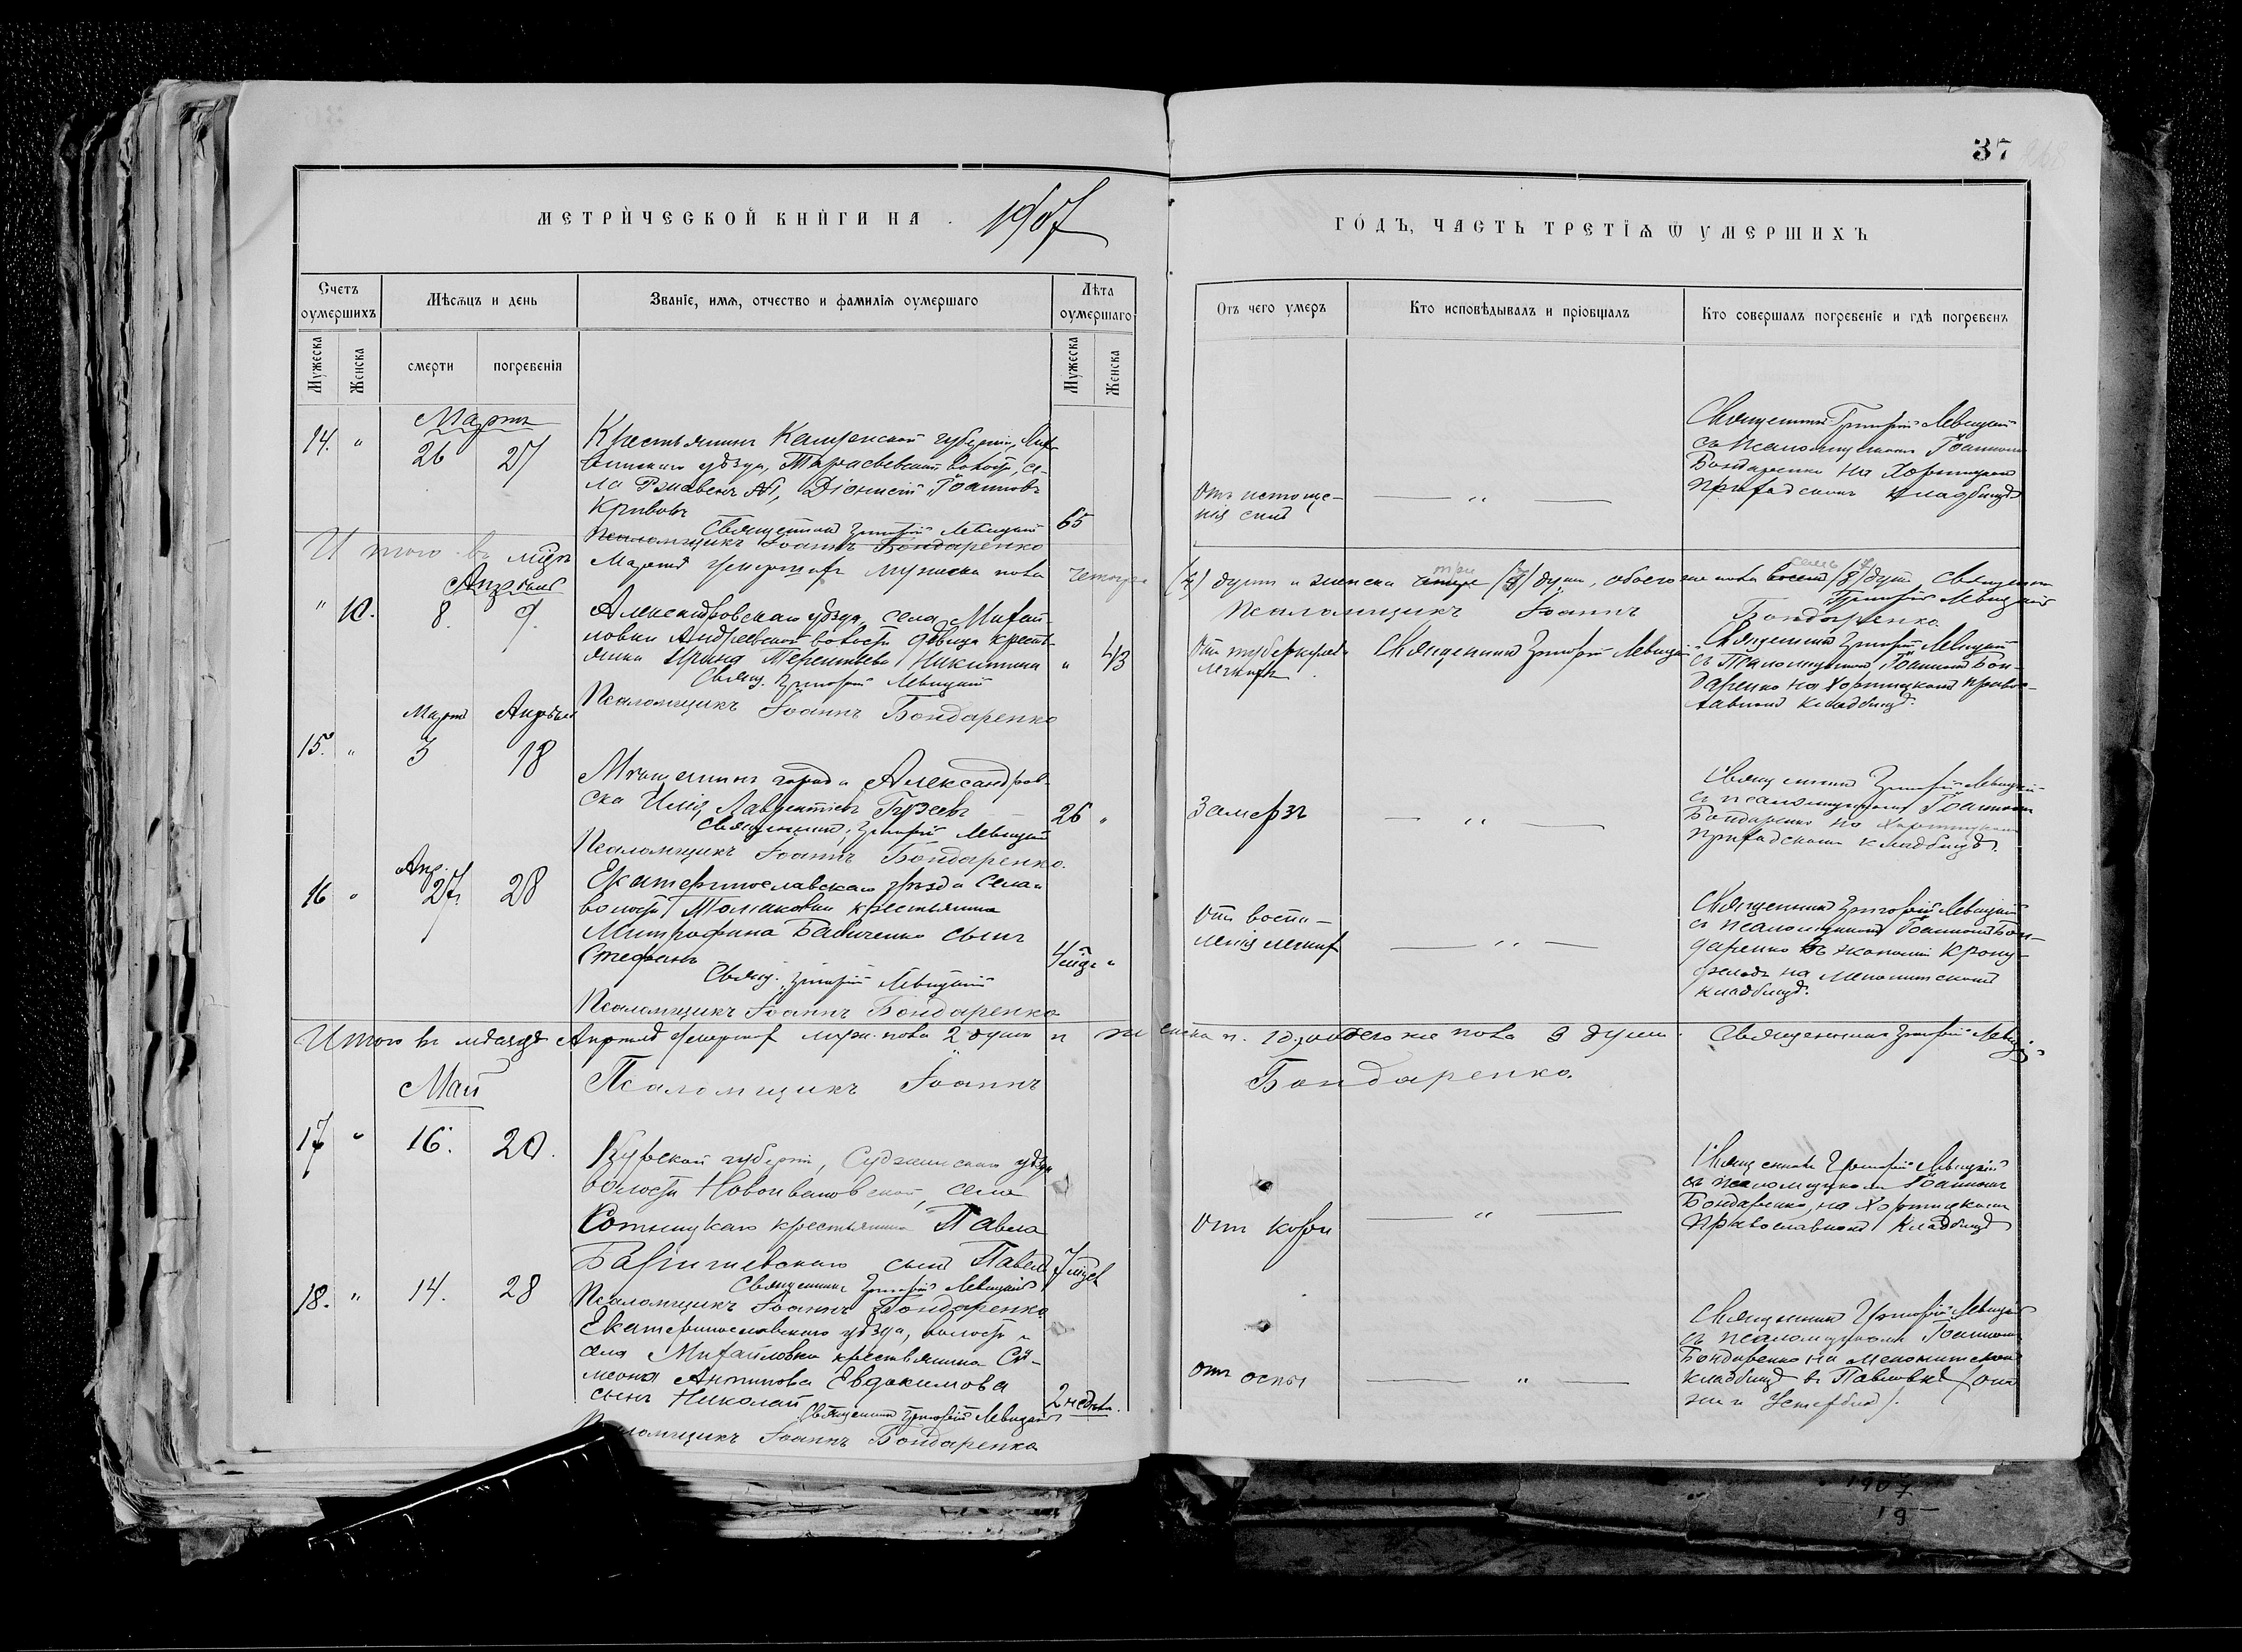 37
МЕТРИЧЕСКОЙ КНИГИ НА 1907
ГОДЪ, ЧАСТЬ ТРЕТІЯ Ѿ УМЕРШИХЪ
Счетъ оумершихъ
Мѣсяцъ и день
Званіе, имя, отчество и фамилія оумершаго
Лѣта оумершаго
Отъ чего умеръ
Кто исповѣдывалъ и пріобщалъ
Кто совершалъ погребеніе и гдѣ погребенъ
Мужеска
Женска
смерти
погребенія
Мужеска
Женска
Мартъ
14. " 26 27
Крестьянинъ губерніи,
уѣзда, волости, се-
ла Діонисій Іоанновъ
Кривовъ
65
Отъ истоще-
нія силъ
— " —
Священникъ Григорій Левицкій
съ псаломщикомъ Іоанномъ
Бондаренко на Хортицкомъ
приходскомъ кладбищѣ
Священникъ Григорій Левицкій
Псаломщикъ Іоаннъ Бондаренко
Итого въ мцѣ Мартѣ умершихъ мужеска пола четыре (4) души и женска три душъ, обоего же пола семь душъ Священникъ
Григорій Левицкій
Псаломщикъ Іоаннъ Бондаренко
Апрѣль
" 10. 8. 9.
Александровскаго уѣзда, села Михай-
ловки Андреевской волости дѣвица кресть-
янка Ирина Терентьева Никитина
" 43
Отъ туберкулеза
легкихъ
Священникъ Григорій Левицкій
Священникъ Григорій Левицкій
съ Псаломщикомъ Іоанномъ Бон-
даренко на Хортицкомъ право-
славномъ кладбищѣ.
Свящ. Григорій Левицкій
Псаломщикъ Іоаннъ Бондаренко
Мартъ Апрѣль
15. " 3 18
Мѣщанинъ города Александров-
ска Илія Лаврентіевъ
26 "
Замерзъ
— " —
Священникъ Григорій Левицкій
съ псаломщикомъ Іоанномъ
Бондаренко на Хортицкомъ
приходскомъ кладбищѣ.
Священникъ Григорій Левицкій
Псаломщикъ Іоаннъ Бондаренко.
Апр.
16 " 27. 28
Екатеринославскаго уѣзда села и
волости Томаковки крестьянина
Митрофана Бабиченко сынъ
Стефанъ
"
Отъ воспа-
ленія легкихъ
— " —
Священникъ Григорій Левицкій
съ псаломщикомъ Іоанномъ Бон-
даренко въ экономіи
на Менонитскомъ
кладбищѣ.
Свящ. Григорій Левицкій
Псаломщикъ Іоаннъ Бондаренко
Итого въ мѣсяцѣ Апрѣлѣ умершихъ муж. пола 2 души и женска п. 1 д., обоего же пола 3 души. Священникъ Григорій Левицкій
Псаломщикъ Іоаннъ Бондаренко.
Май
17 " 16. 20.
Курской губерніи, Суджанскаго уѣзда
волости Новоивановской, села
крестьянина Павла
сынъ Павелъ
7 мцев
Отъ кори
— " —
Священникъ Григорій Левицкій
съ псаломщикомъ Іоанномъ
Бондаренко, на Хортицкомъ
православномъ кладбищѣ
Священникъ Григорій Левицкій
Псаломщикъ Іоаннъ Бондаренко
18. " 14. 28
Екатеринославскаго уѣзда, волости и
села Михайловки крестьянина Си-
меона Антипова Евдокимова
сынъ Николай
2 недѣли.
отъ оспы
— " —
Священникъ Григорій Левицкій
съ псаломщикомъ Іоанномъ
Бондаренко на Менонитскомъ
кладбищѣ въ Павловкѣ
Священникъ Григорій Левицкій
Псаломщикъ Іоаннъ Бондаренко
1907
19